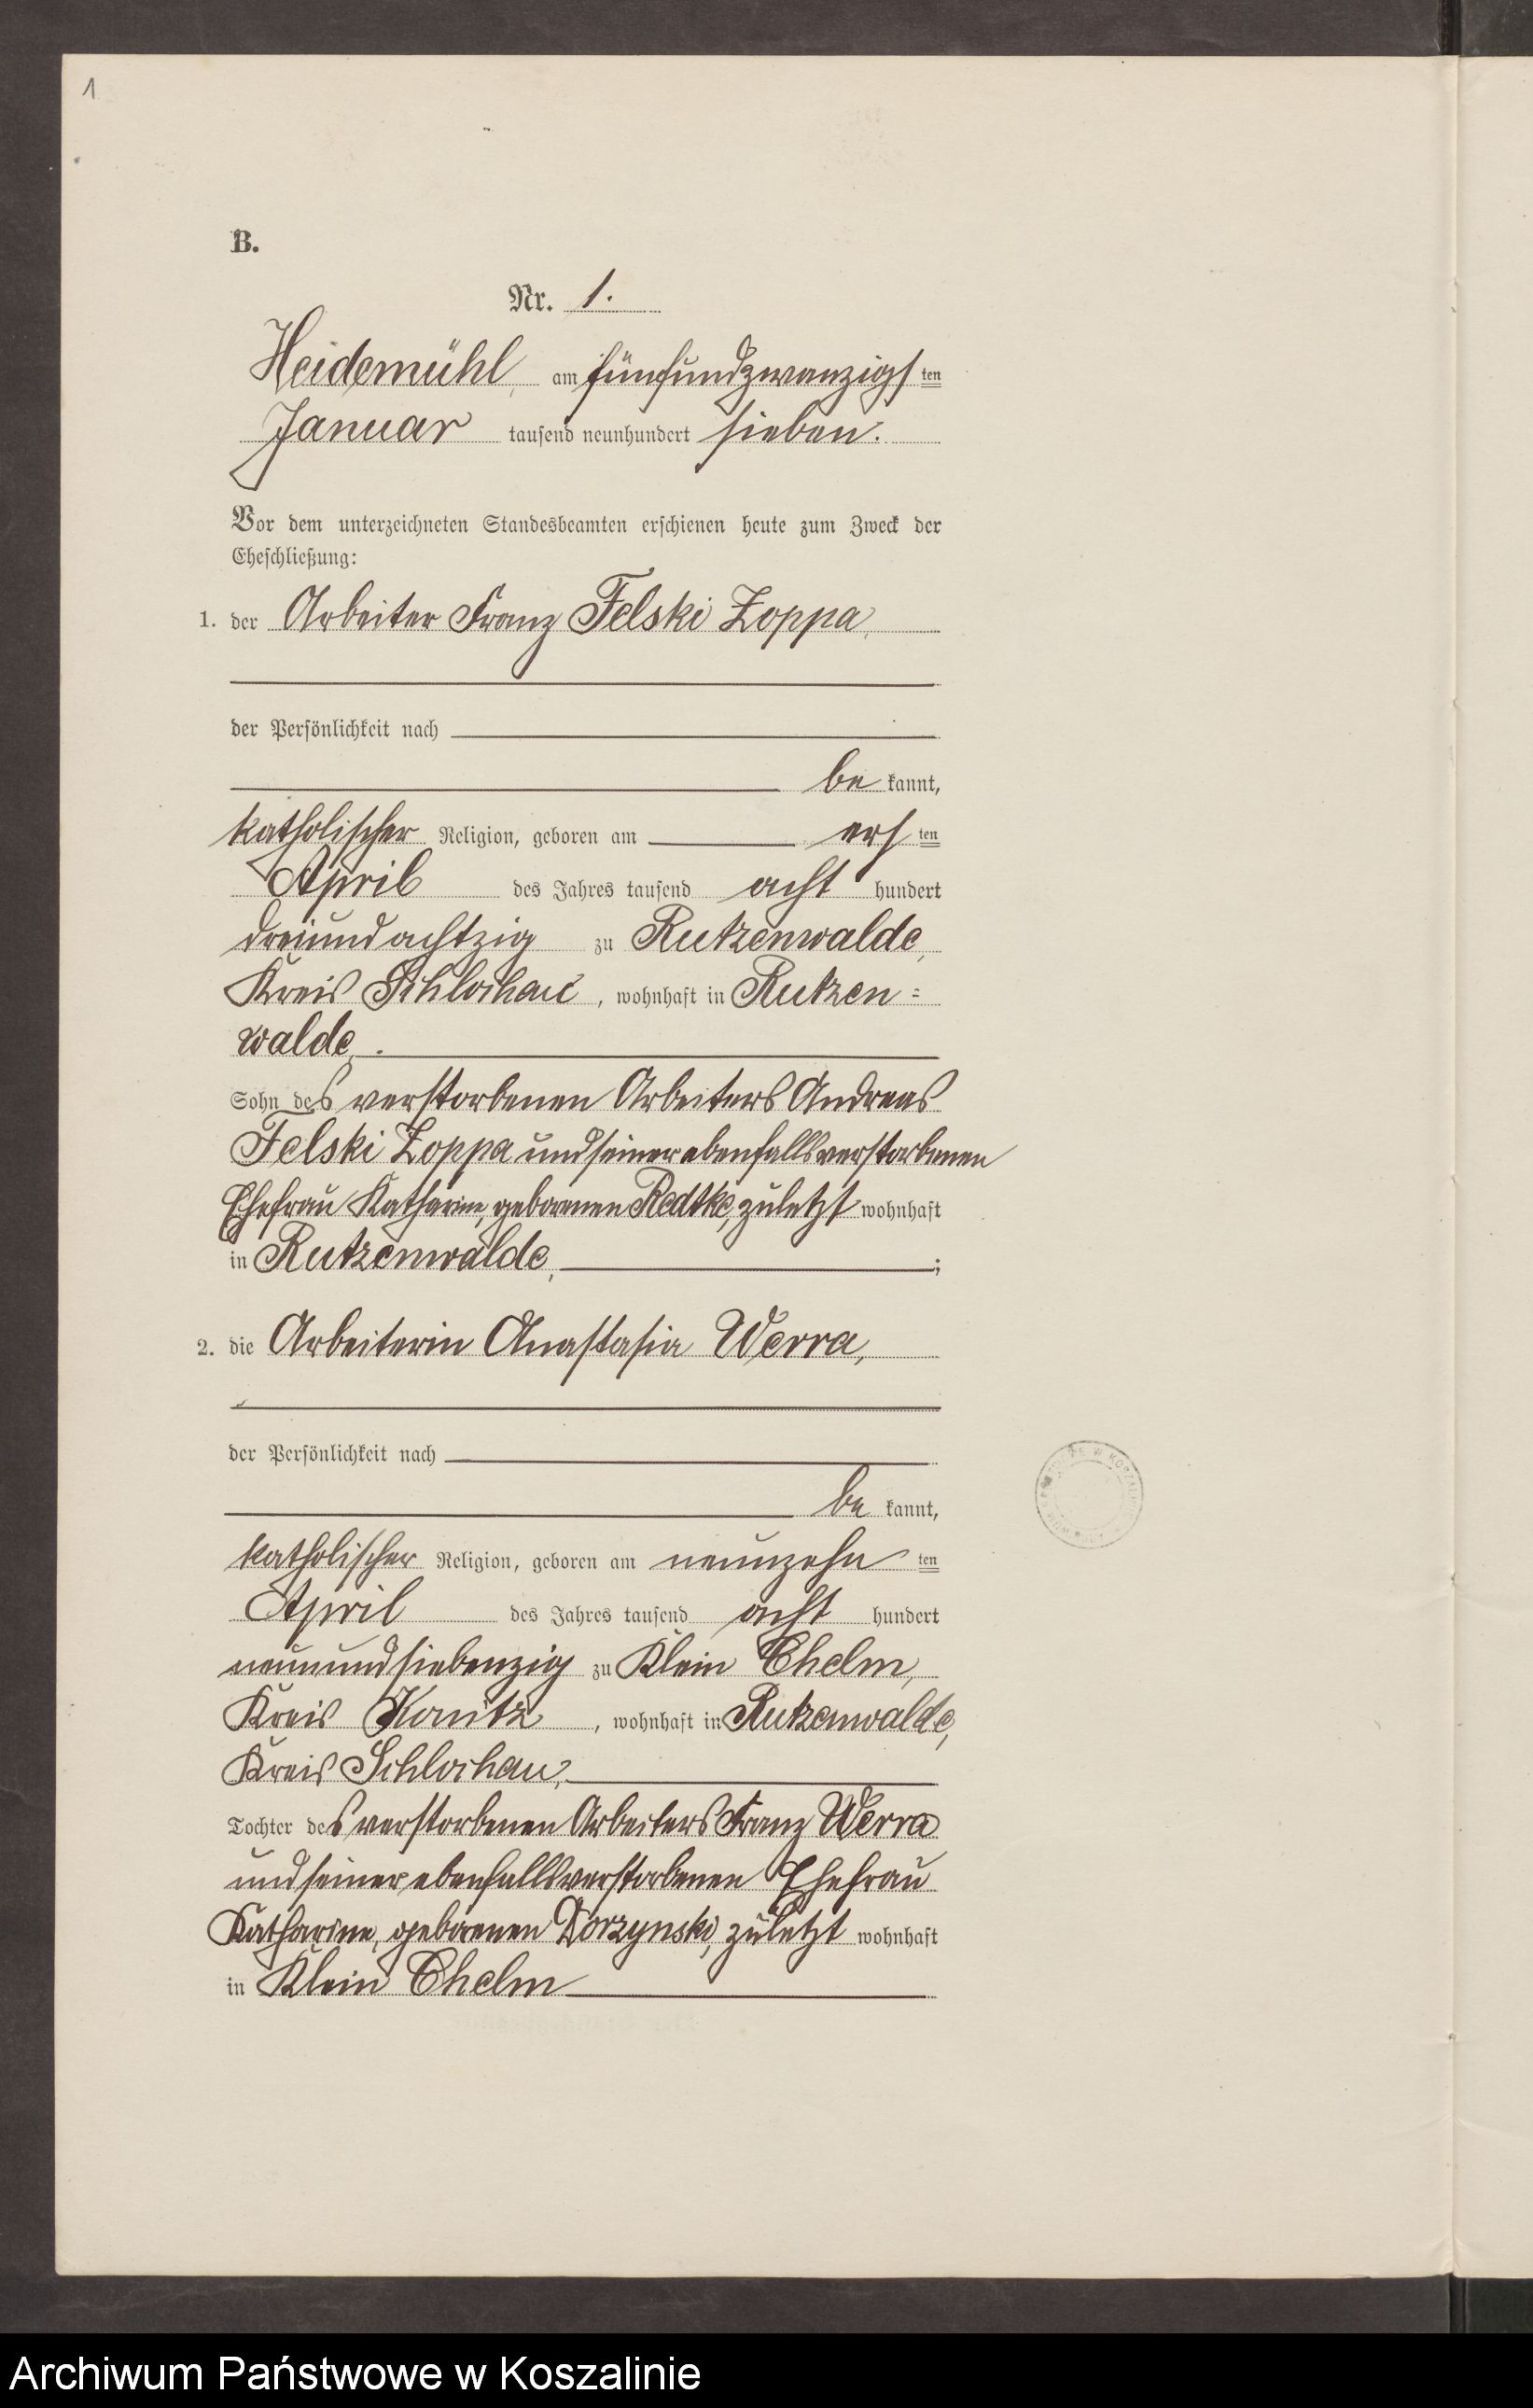 1
B.
Nr. 1.
Heidemühl, am fünfundzwanzigsten
Januar tausend neunhundert sieben.
Vor dem unterzeichneten Standesbeamten erschienen heute zum Zweck der
Eheschließung:
1. der Arbeiter Franz Felski Zoppa,
der Persönlichkeit nach
be kannt,
katholischer Religion, geboren am ersten
April des Jahres tausend acht hundert
dreiundachtzig zu Rutzenwalde,
Kreis Schlochau, wohnhaft in Rutzen=
walde.
Sohn des verstorbenen Arbeiters Andreas
Felski Zoppa und seiner ebenfalls verstorbenen
Ehefrau Katharine, geborenen Redtke, zuletzt wohnhaft
in Rutzenwalde, ;
2. die Arbeiterin Anastasia Werra,
der Persönlichkeit nach
be kannt,
katholischer Religion, geboren am neunzehnten
April des Jahres tausend acht hundert
neunundsiebenzig zu Klein Chelm,
Kreis Konitz, wohnhaft in Rutzenwalde,
Kreis Schlochau,
Tochter des verstorbenen Arbeiters Franz Werra
und seiner ebenfalls verstorbenen Ehefrau
Katharine, geborenen Dorzynski, zuletzt wohnhaft
in Klein Chelm
W KOSZALINIE
Archiwum Państwowe w Koszalinie